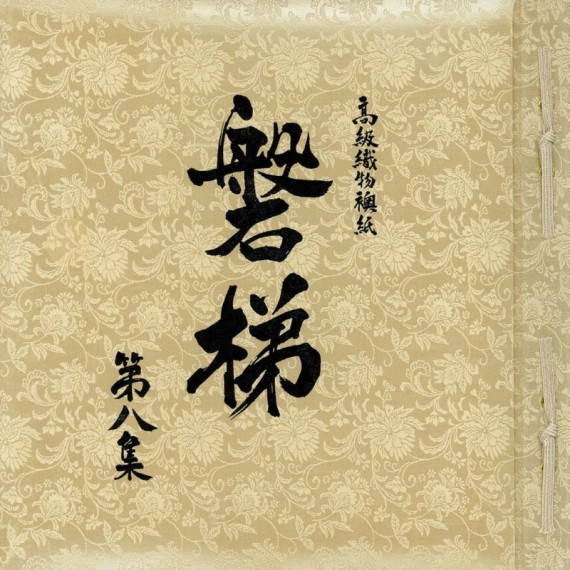 高級織物襖紙
磐梯
第八集